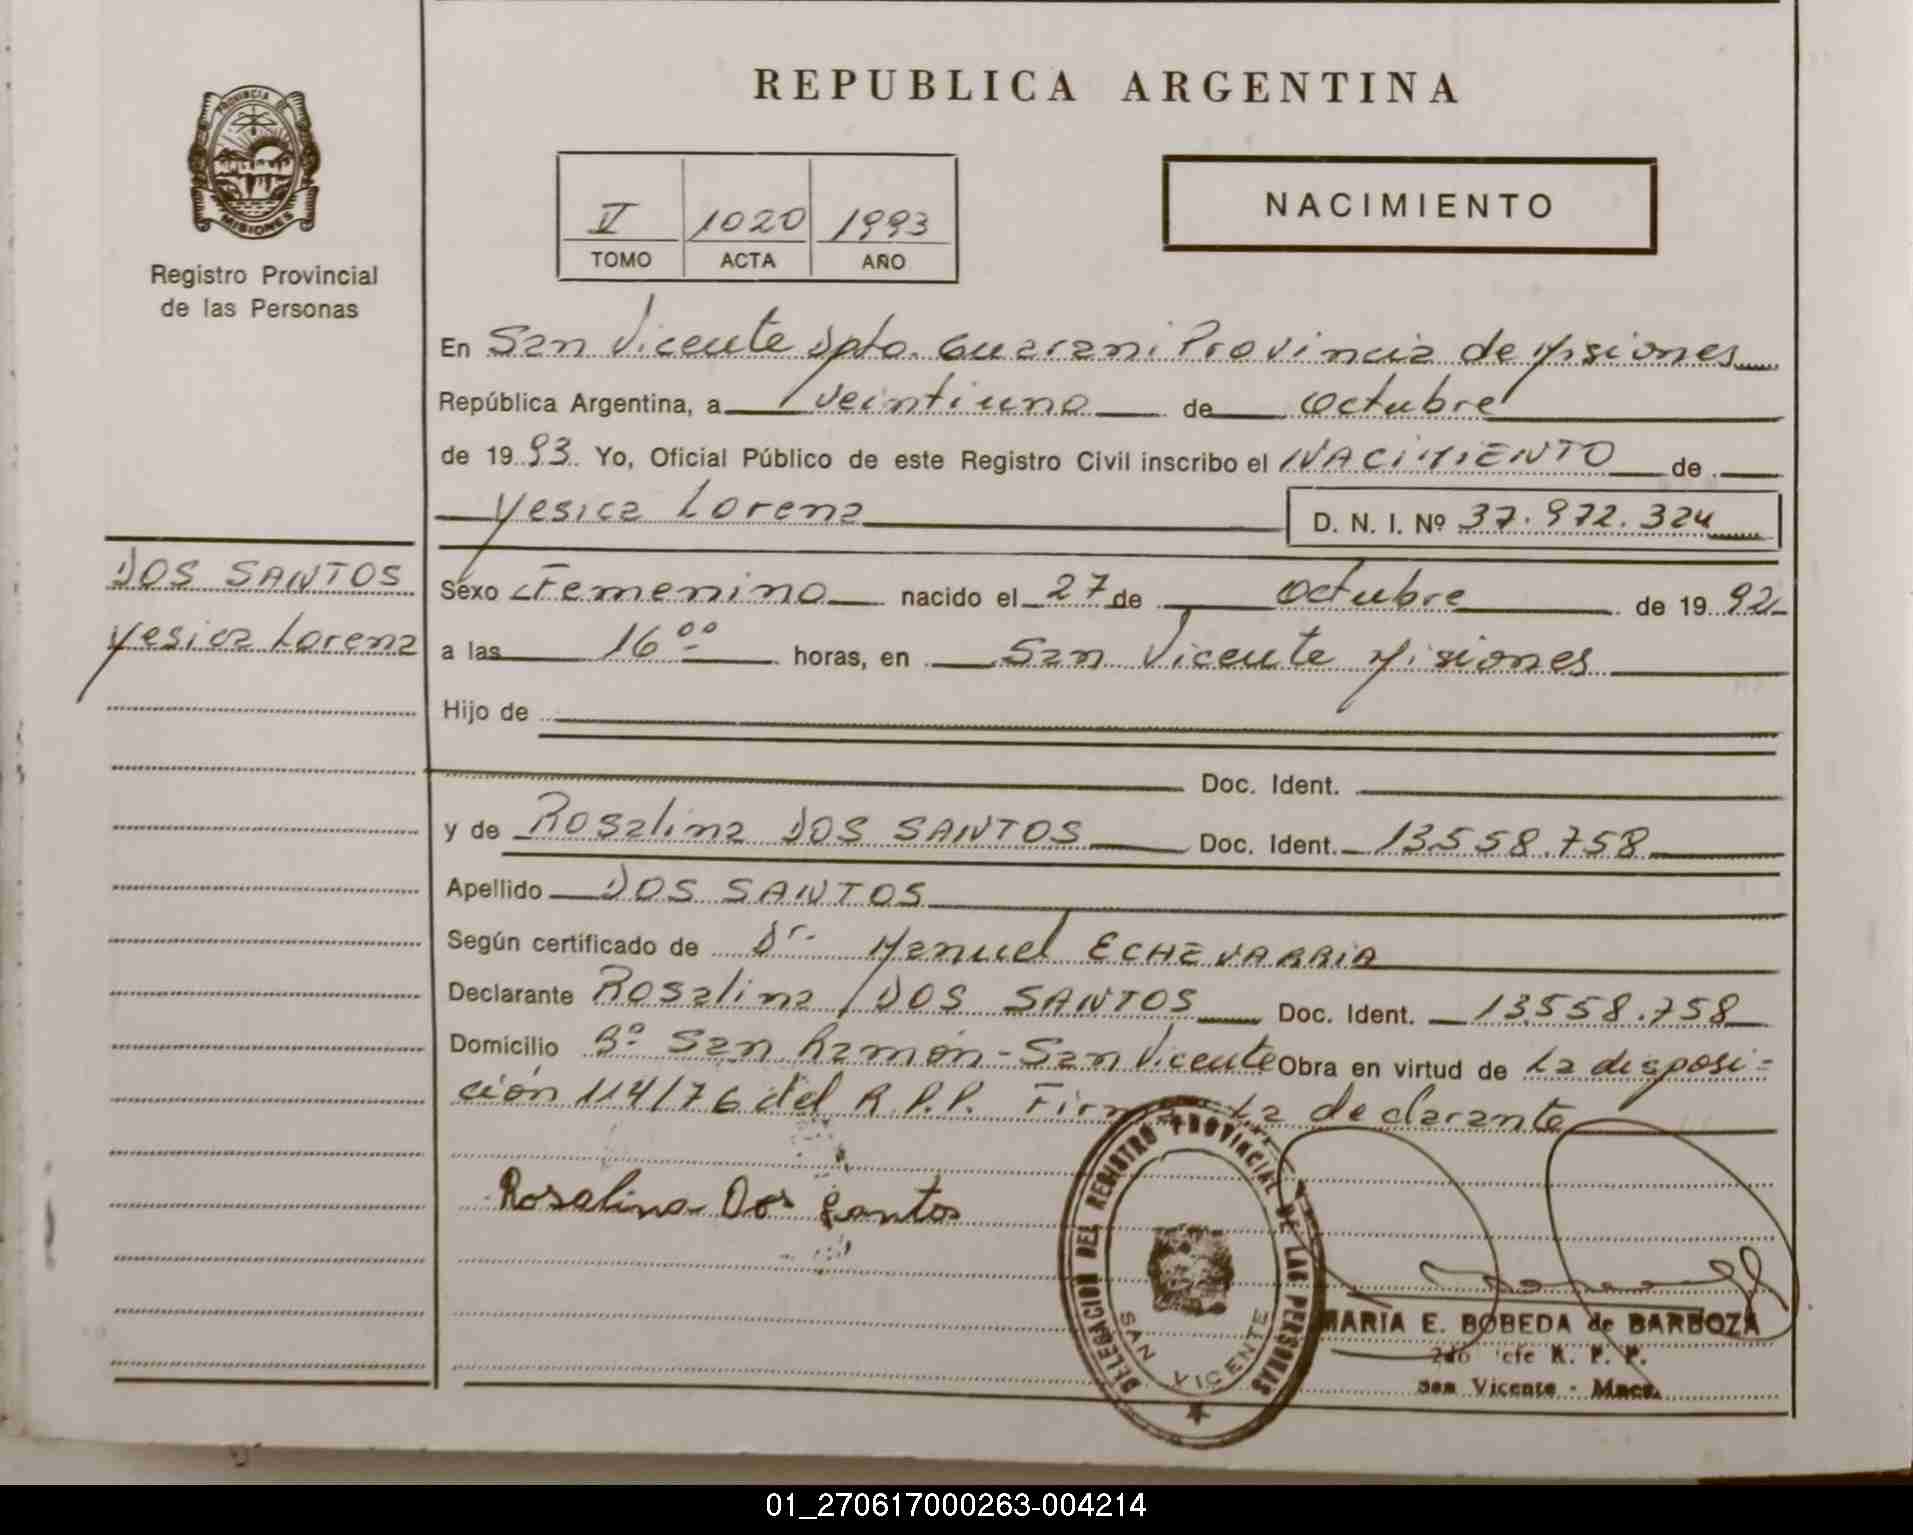 PROVINCIA DE
MISIONES
Registro Provincial
de las Personas
REPUBLICA ARGENTINA
V 1020 1993
TOMO ACTA AÑO
NACIMIENTO
En San Vicente Dpto. Guarani Provincia de Misiones
República Argentina, a veintiuno de octubre
de 1993. Yo, Oficial Público de este Registro Civil inscribo el NACIMIENTO de
Yesica Lorena D. N. I. Nº 37.972.324
DOS SANTOS
Yesica Lorena
Sexo Femenino nacido el 27 de octubre de 1992
a las 16⁰⁰ horas, en San Vicente Misiones
Hijo de
Doc. Ident.
y de Rosalina DOS SANTOS Doc. Ident. 13.558.758
Apellido DOS SANTOS
Según certificado de Dr. Manuel ECHEVARRIA
Declarante Rosalina DOS SANTOS Doc. Ident. 13.558.758
Domicilio Bº San Ramón - San Vicente Obra en virtud de La disposi=
ción 114/76 del R.P.P. Firma La declarante
Rosalina Dos Santos
DELEGACION DEL REGISTRO PROVINCIAL DE LAS PERSONAS
SAN VICENTE
MARIA E. BOBEDA de BARBOZA
2do Jefe R. P. P.
San Vicente - Mnes.
01_270617000263-004214